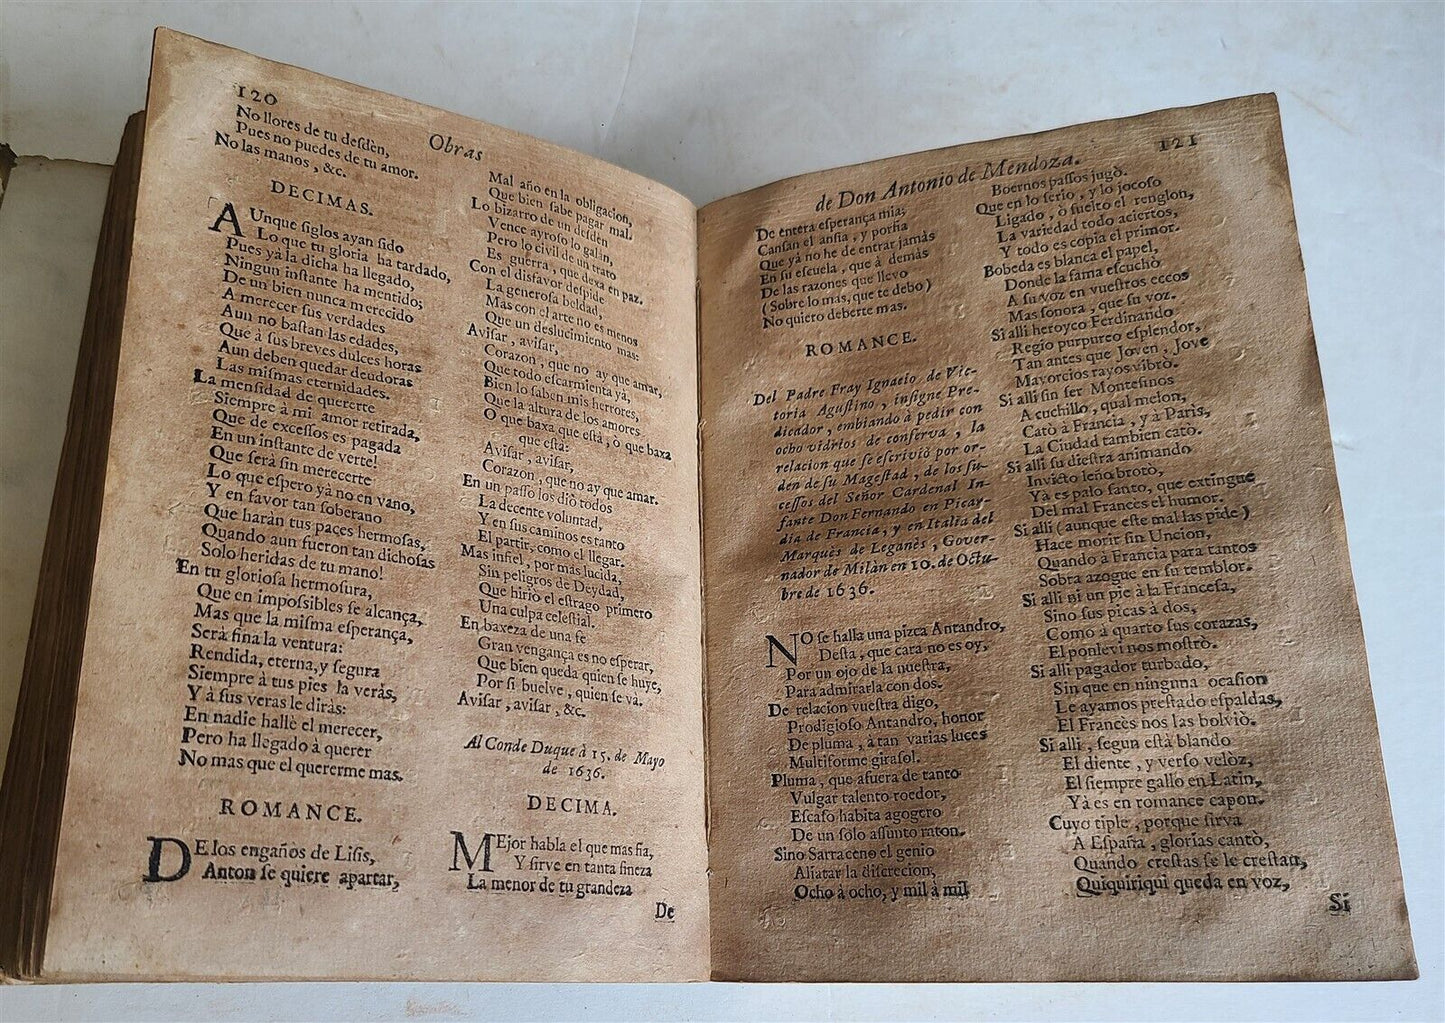 120
Obras
No llores de tu desdèn,
Pues no puedes de tu amor.
No las manos, &c.
DECIMAS.
AUnque siglos ayan sido
Lo que tu gloria ha tardado,
Pues yà la dicha ha llegado,
Ningun instante ha mentido;
De un bien nunca merecido
A merecer sus verdades
Aun no bastan las edades,
Que à sus breves dulces horas
Aun deben quedar deudoras
Las mismas eternidades.
La mensidad de quererte
Siempre à mi amor retirada,
Que de excessos es pagada
En un instante de verte!
Que serà sin merecerte
Lo que espero yà no en vano,
Y en favor tan soberano
Que haràn tus paces hermosas,
Quando aun fueron tan dichosas
Solo heridas de tu mano!
En tu gloriosa hermosura,
Que en impossibles se alcança,
Mas que la misma esperança,
Serà fina la ventura:
Rendida, eterna, y segura
Siempre à tus pies la veràs,
Y à sus veras le diràs:
En nadie hallè el merecer,
Pero ha llegado à querer
No mas que el quererme mas.
ROMANCE.
DE los engaños de Lisis,
Anton se quiere apartar,
Mal año en la obligacion,
Que bien sabe pagar mal.
Lo bizarro de un desdèn
Vence ayroso lo galàn,
Pero lo civil de un trato
Es guerra, que dexa en paz.
Con el disfavor despide
La generosa beldad,
Mas con el arte no es menos
Que un deslucimiento mas:
Avisar, avisar,
Corazon, que no ay que amar,
Que todo escarmienta yà,
Bien lo saben mis herrores,
Que la altura de los amores
O que baxa que està, ò que baxa
que està:
Avisar, avisar,
Corazon, que no ay que amar.
En un passo los diò todos
La decente voluntad,
Y en sus caminos es tanto
El partir, como el llegar.
Mas infiel, por mas lucida,
Sin peligros de Deydad,
Que hiriò el estrago primero
Una culpa celestial.
En baxeza de una fe
Gran vengança es no esperar,
Que bien queda quien se huye,
Por si buelve, quien se và.
Avisar, avisar, &c.
Al Conde Duque à 15. de Mayo
de 1636.
DECIMA.
MEjor habla el que mas fia,
Y sirve en tanta fineza
La menor de tu grandeza
De
de Don Antonio de Mendoza.
121
De entera esperança mia;
Cansan el ansia, y porfia
Que yà no he de entrar jamàs
En su escuela, que à demàs
De las razones que llevo
(Sobre lo mas, que te debo)
No quiero deberte mas.
ROMANCE.
Del Padre Fray Ignacio de Vic-
toria Agustino, insigne Pre-
dicador, embiando à pedir con
ocho vidrios de conserva, la
relacion que se escriviò por or-
den de su Magestad, de los su-
cessos del Señor Cardenal In-
fante Don Fernando en Picar-
dia de Francia, y en Italia del
Marquès de Leganès, Gover-
nador de Milàn en 10. de Octu-
bre de 1636.
NO se halla una pizca Antandro,
Desta, que cara no es oy,
Por un ojo de la nuestra,
Para admirarla con dos.
De relacion vuestra digo,
Prodigioso Antandro, honor
De pluma, à tan varias luces
Multiforme girasol.
Pluma, que afuera de tanto
Vulgar talento roedor,
Escaso habita agogero
De un solo assunto raton.
Sino Sarraceno el genio
Aliatar la discrecion,
Ocho à ocho, y mil à mil
Boernos passos jugò.
Que en lo serio, y lo jocoso
Ligado, ò suelto el renglon,
La variedad todo aciertos,
Y todo es copia el primor.
Bobeda es blanca el papel,
Donde la fama escuchò
A su voz en vuestros eccos
Mas sonora, que su voz.
Si alli heroyco Ferdinando
Regio purpureo esplendor,
Tan antes que Joven, Jove
Mayorcios rayos vibrò.
Si alli sin ser Montesinos
A cuchillo, qual melon,
Catò à Francia, y à Paris,
La Ciudad tambien catò.
Si alli su diestra animando
Invicto leño brotò,
Yà es palo santo, que extingue
Del mal Francès el humor.
Si alli (aunque este mal las pide)
Hace morir sin Uncion,
Quando à Francia para tantos
Sobra azogue en su temblor.
Si alli ni un pie à la Francesa,
Sino sus picas à dos,
Como à quarto sus corazas,
El ponlevi nos mostrò.
Si alli pagador turbado,
Sin que en ninguna ocasion
Le ayamos prestado espaldas,
El Francès nos las bolviò.
Si alli, segun està blando
El diente, y verso velòz,
El siempre gallo en Latin,
Yà es en romance capon.
Cuyo tiple, porque sirva
A España, glorias cantò,
Quando crestas se le crestan,
Quiquiriqui queda en voz,
Si